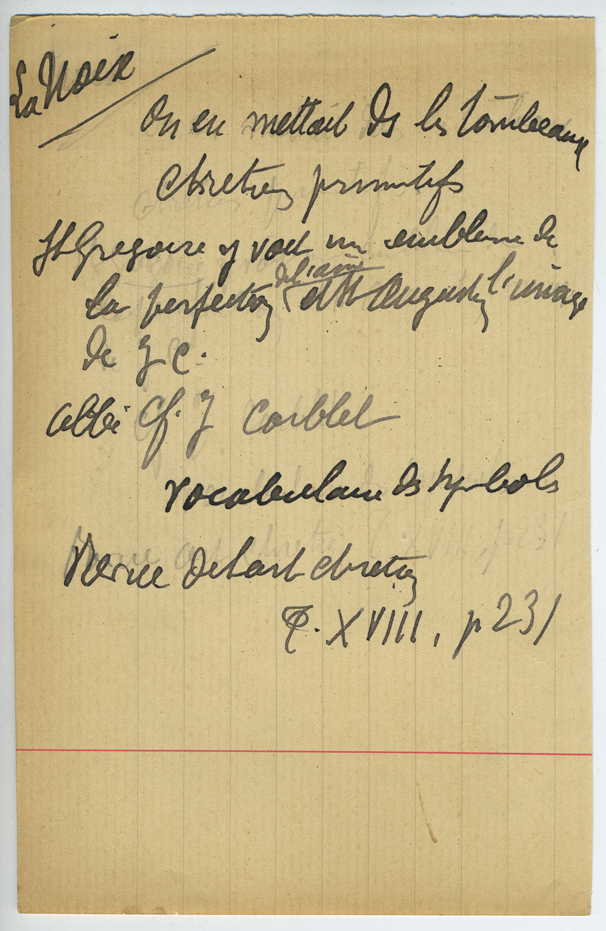 La Noix
On en mettait ds les tombeaux
chretiens primitifs
St Gregoire y voit un embleme de
la perfection de l'ame et St Augustin l'image
de J C.
abbé Cf. J Corblet
Vocabulaire des symbols
Revue de l'art chretien
T. XVIII, p 231